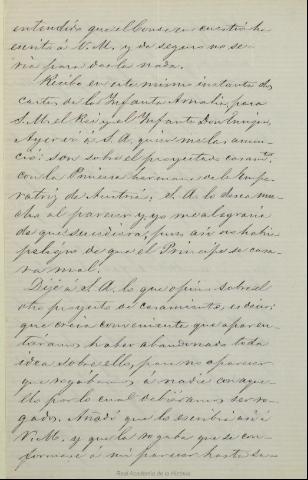 entendido que el Conde en cuestión ha
escrito á V.M. y de seguro no se-
ría para darle nada.
Recibo en este mismo instante dos
cartas de la Infanta Amalia, para
S.M. el Rey y el Infante Don Enrique
Ayer ví á S.A. quien me las anun-
ció: son sobre el proyectado casamto.
con la Princesa hermana de la Empe-
ratriz de Austria, S.A. lo desea mu-
cho al parecer y yo me alegraria
de que sucediera, pues así no habia
peligro de que el Príncipe se casa-
ra mal.
Dije á S.A. lo que opino sobre el
otro proyecto de casamiento, es decir:
que creia conveniente que aparen-
táramos haber abandonado toda
idea sobre ello, para no aparecer
que rogábamos á nadie con aque-
llo por lo cual debiéramos ser ro-
gados. Añadí que lo escribí así á
V.M. y que la rogaba que se con-
formase á mi parecer hasta se-
Real Academia de la Historia